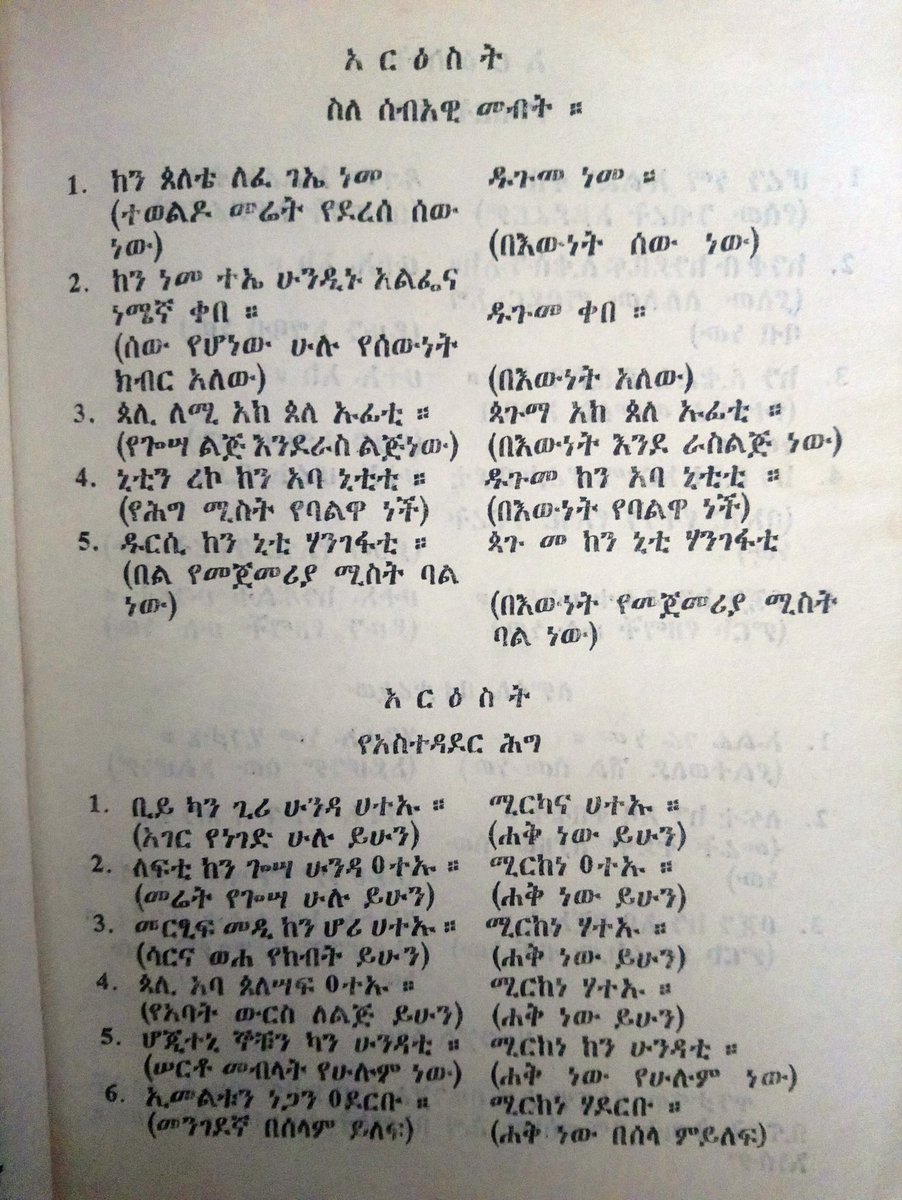 አ ር ዕ ስ ት
ስለ ሰብአዊ መብት ።
1. ከን ጰለቴ ለፈ ገኤ ነመ ዱጉመ ነመ ።
(ተወልዶ መሬት የደረሰ ሰው
ነው) (በእውነት ሰው ነው)
2. ከን ነመ ተኤ ሁንዲኑ አልፌና
ነሜኛ ቀበ ። ዱጉመ ቀበ ።
(ሰው የሆነው ሁሉ የሰውነት
ክብር አለው) (በእውነት አለው)
3. ጳሊ ለሚ አከ ጳለ ኡፊቲ ። ጳጉማ አከ ጳለ ኡፊቲ ።
(የጐሣ ልጅ እንደራስ ልጅነው) (በእውነት እንደ ራስልጅ ነው)
4. ኒቲን ረኮ ከን አባ ኒቲቲ ። ዱጉመ ከን አባ ኒቲቲ ።
(የሕግ ሚስት የባልዋ ነች) (በእውነት የባልዋ ነች)
5. ዱርሲ ከን ኒቲ ሃንገፋቲ ። ጳጉ መ ከን ኒቲ ሃንገፋቲ
(በል የመጀመሪያ ሚስት ባል
ነው) (በእውነት የመጀመሪያ ሚስት
ባል ነው)
አ ር ዕ ስ ት
የአስተዳደር ሕግ
1. ቢይ ካን ጊሪ ሁንዳ ሀተኡ ። ሚርካና ሀተኡ ።
(አገር የነገድ ሁሉ ይሁን) (ሐቅ ነው ይሁን)
2. ለፍቲ ከን ጐሣ ሁንዳ ዐተኡ ። ሚርከነ ዐተኡ ።
(መሬት የጐሣ ሁሉ ይሁን) (ሐቅ ነው ይሁን)
3. መርፂፍ መዲ ከን ሆሪ ሀተኡ ። ሚርከነ ሃተኡ ።
(ሳርና ወሐ የከብት ይሁን) (ሐቅ ነው ይሁን)
4. ጳሊ አባ ጳለሣፍ ዐተኡ ። ሚርከነ ሃተኡ ።
(የአባት ውርስ ለልጅ ይሁን) (ሐቅ ነው ይሁን)
5. ሆጂተኒ ኛቹን ካን ሁንዳቲ ። ሚርከነ ከን ሁንዳቲ ።
(ሠርቶ መብላት የሁሉም ነው) (ሐቅ ነው የሁሉም ነው)
6. ኢመልቱን ነጋን ዐደርቡ ። ሚርከነ ሃደርቡ ።
(መንገደኛ በሰላም ይለፍ) (ሐቅ ነው በሰላ ምይለፍ)